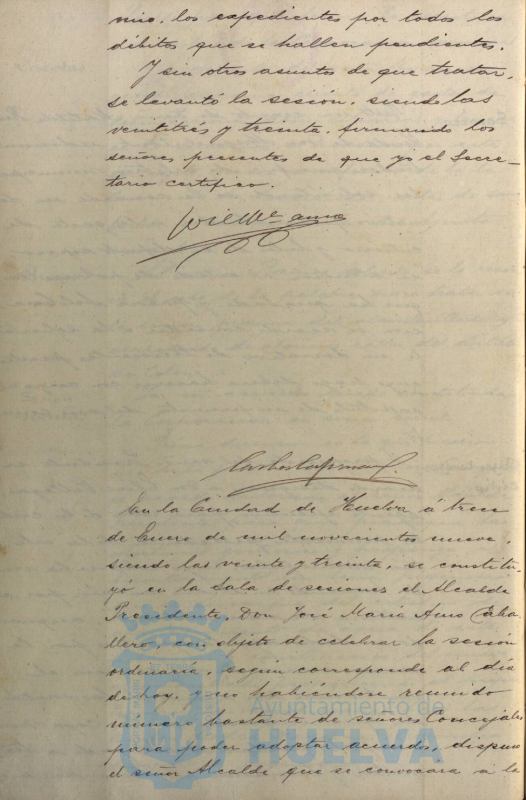 mio, los expedientes por todos los
débitos que se hallen pendientes.
Y sin otros asuntos de que tratar,
se levantó la sesión, siendo las
veintitrés y treinta, firmando los
señores presentes de que yo el Secre-
tario certifico.
José Mª Amo
En la Ciudad de Huelva á trece
de Enero de mil novecientos nueve,
siendo las veinte y treinta, se constitu-
yó en la Sala de sesiones el Alcalde
Presidente, Don José María Amo Caba-
llero, con objeto de celebrar la sesión
ordinaria, según corresponde al día
de hoy, y no habiéndose reunido
número bastante de señores Concejales
para poder adoptar acuerdos, dispuso
el señor Alcalde que se convocara á la
Ayuntamiento de
HUELVA